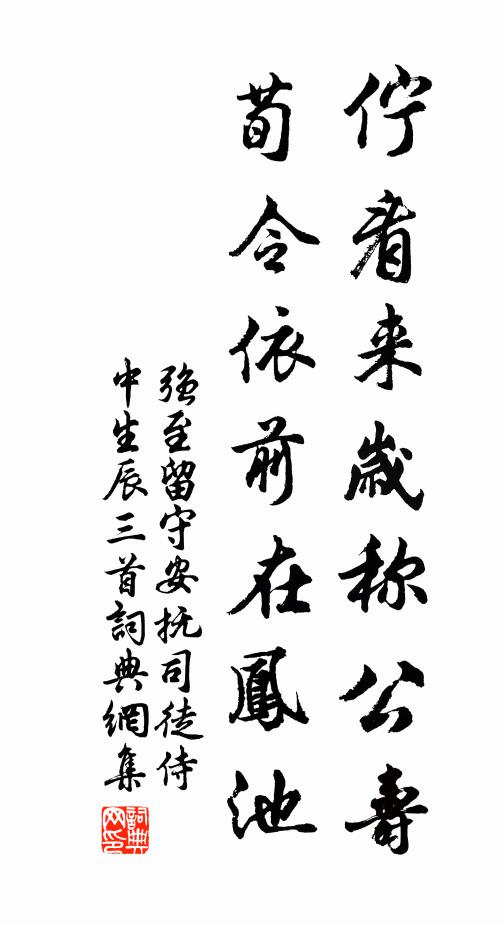 佇看来歲称公壽
荀令依前在鳳池
强至留守安抚司徒侍
中生辰三首詞典網集
詞典
网印